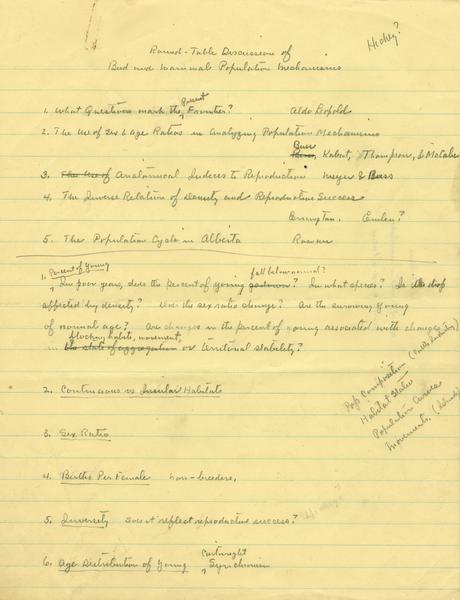 Hickey?
Round-Table Discussion of
Bird and Mammal Population Mechanisms
1. What Questions mark the Present Frontier? Aldo Leopold
2. The Use of Sex & Age Ratios in Analyzing Population Mechanisms
Buss
Kabat, Thompson, & McCabe
3. The Use of Anatomical Indices to Reproduction Meyer & Buss
4. The Inverse Relation of Density and Reproductive Success
Errington, Emlen?
5. The Population Cycle in Alberta Rowan
1. Percent of Young
In poor years, does the percent of young fall below normal? In what species? Is the drop
affected by density? Does the sex ratio change? Are the surviving young
of normal age? Are changes in the percent of young associated with changes
in flocking habits, movement,
the state of aggregation or territorial stability?
2. Continuous vs Insular Habitats
Pop Composition
Habitat States
Population Curves
Movements.
3. Sex Ratio
4. Births Per Female non-breeders,
5. Inversity Does it reflect reproductive success?
6. Age Distribution of Young Cartwright Synchronism